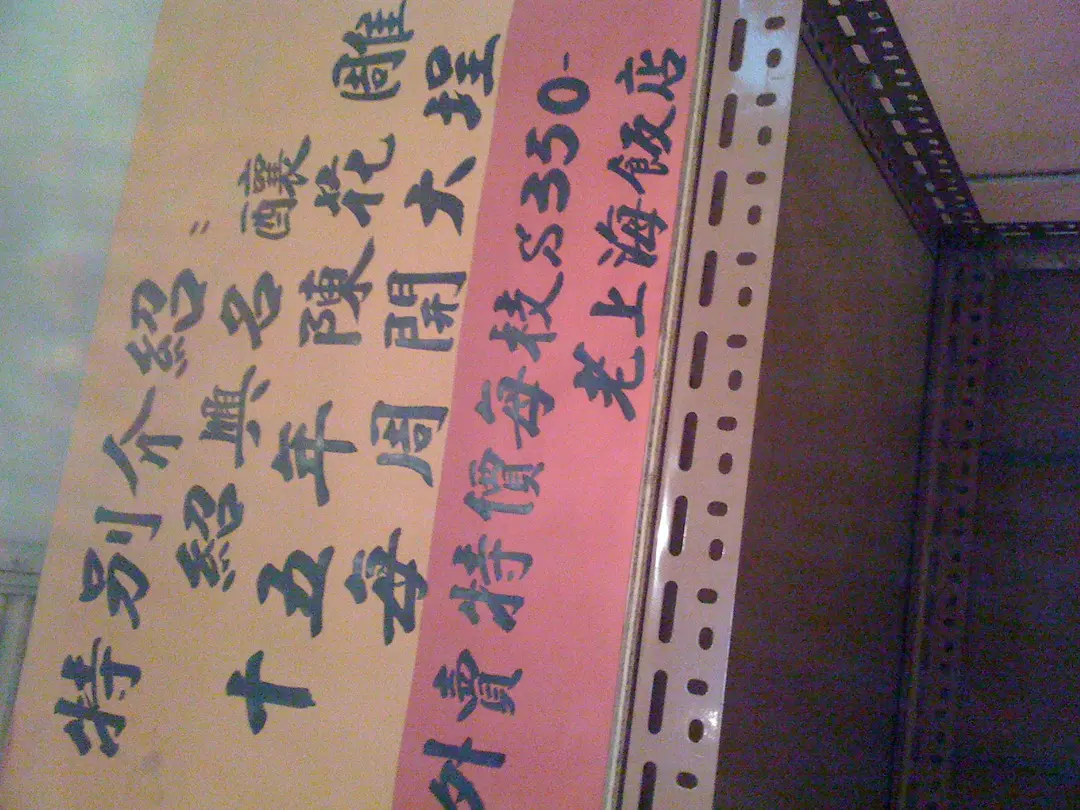 特別介紹：
紹興名釀
十五年陳花雕
每周開大埕
外賣特價每枝$350-
老上海飯店